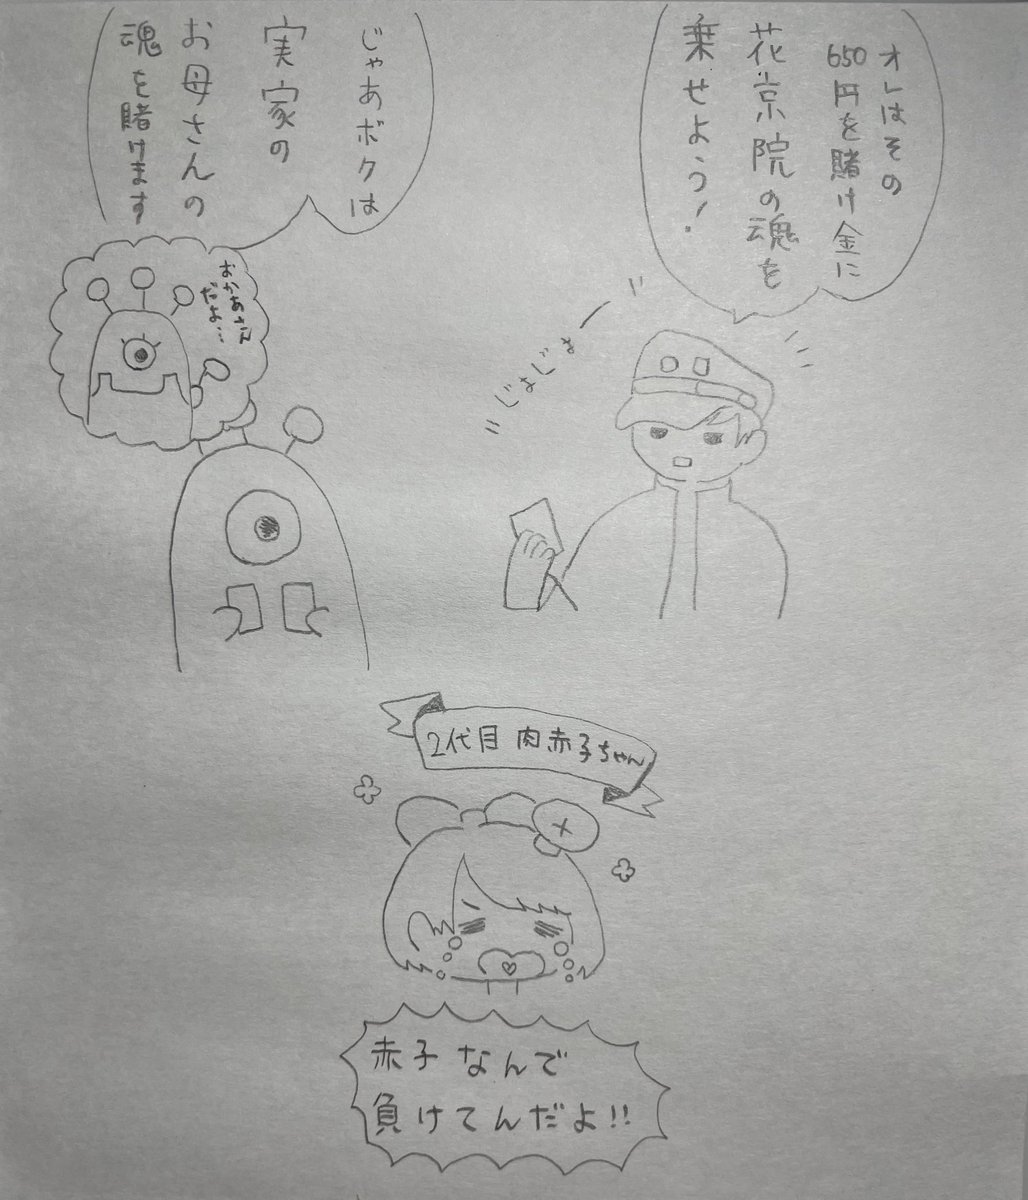 オレはその
650円を賭け金に
花京院の魂を
乗せよう!
じょじょー
じゃあボクは
実家の
お母さんの
魂を賭けます
おかあさん
だよ…
2代目 肉赤子ちゃん
赤子なんで
負けてんだよ!!